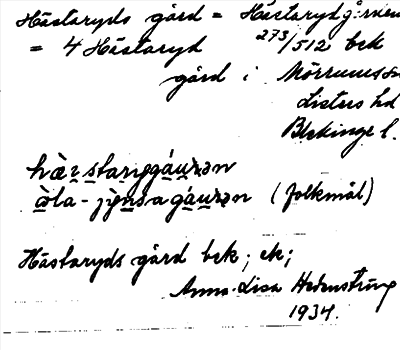 Hästaryds gård = Hästarydgården
= 4 Hästaryd 273/512 bek
gård i Mörrums sn
Listers hd
Blekinge l.
hæ̀ɪstaryggáuɽən
òla - jènsagáuɽən (folkmål)
Hästaryds gård bek; ek;
Anna-Lisa Hedenström
1934.